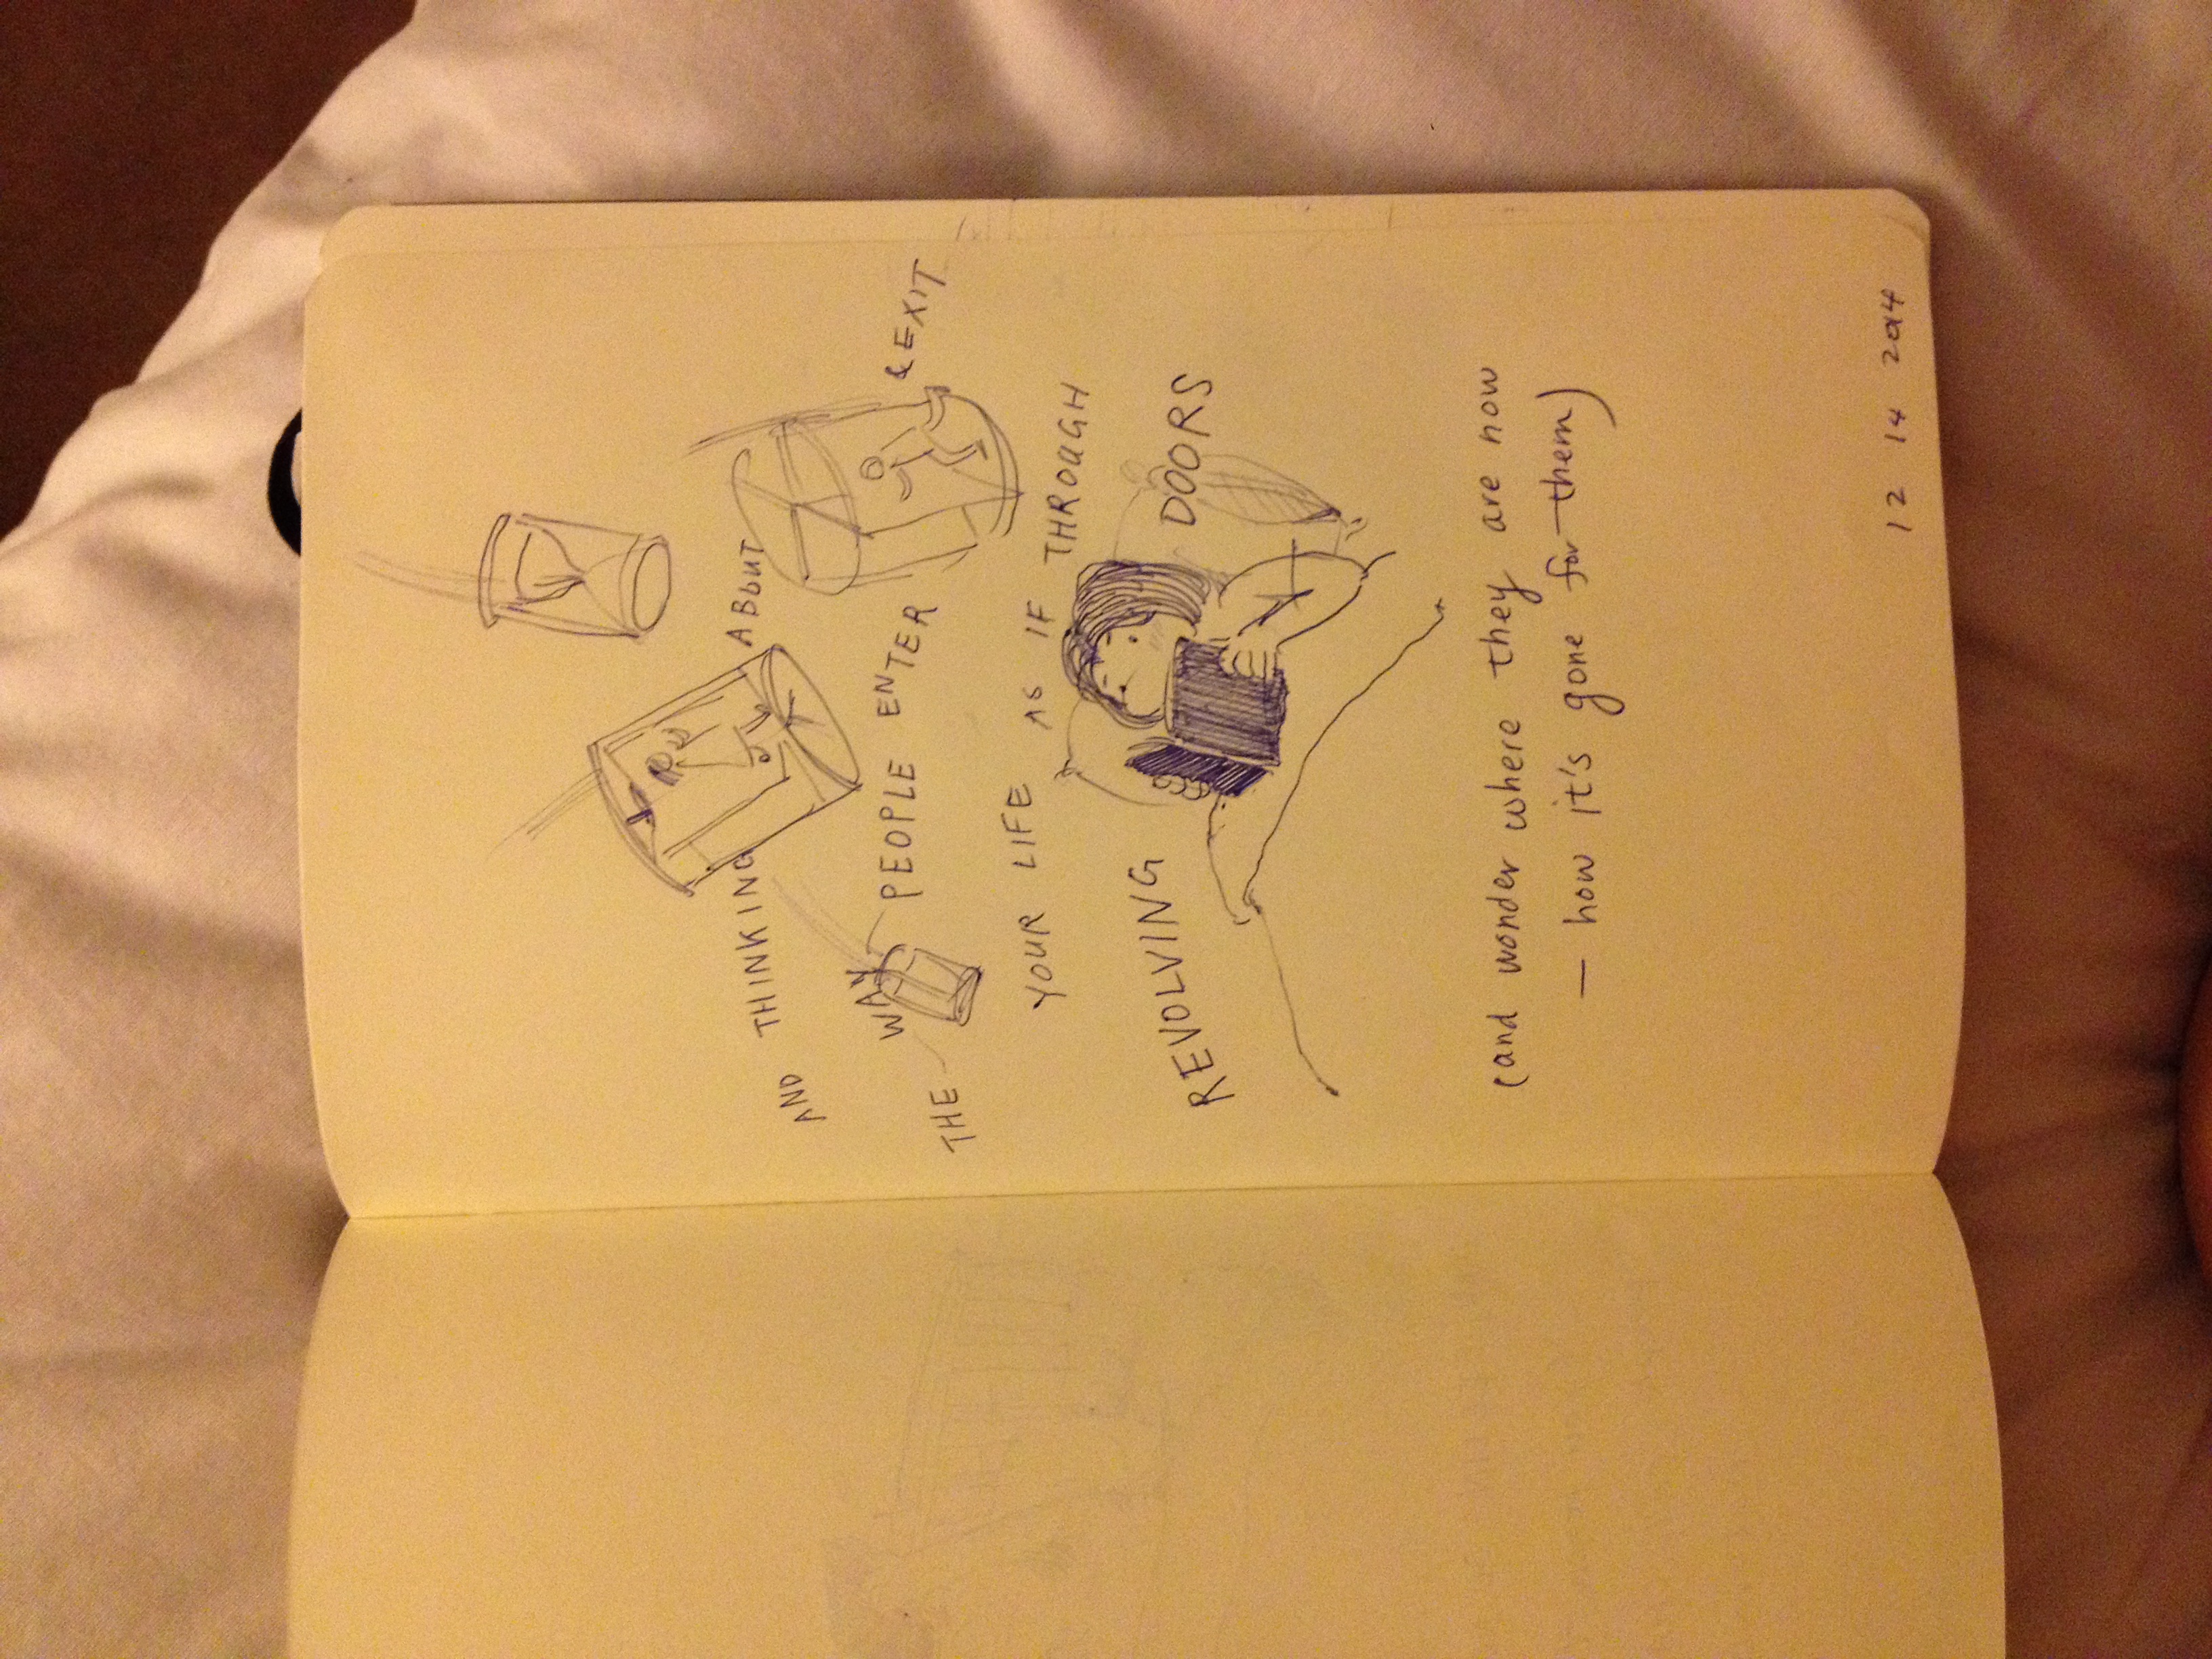 AND THINKING ABOUT
THE WAY PEOPLE ENTER & EXIT
YOUR LIFE AS IF THROUGH
REVOLVING DOORS
(and wonder where they are now
— how it's gone for them)
12 14 2014